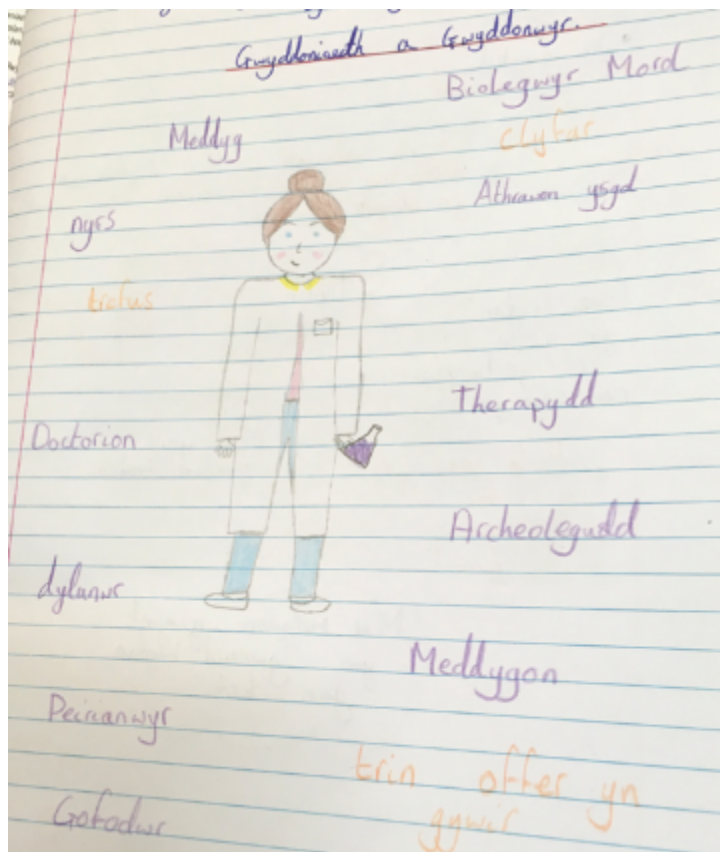 Gwyddoniaeth a Gwyddonwyr.
Biolegwyr Mord
Meddyg
clyfar
Athrawon ysgd
nyrs
trefus
Therapydd
Doctorion
Archeolegudd
dylanwr
Meddygon
Peirianwyr
trin offer yn
gywir
Gofodwr